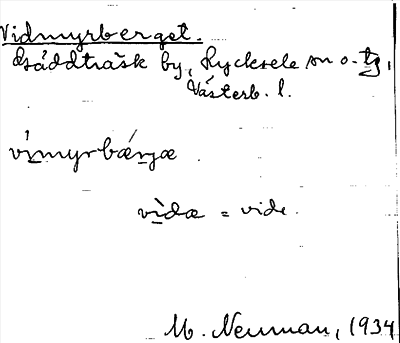 Vidmyrberget.
Gäddträsk by, Lycksele sn o. tg,
Västerb. l.
vímyrbǽrjæ.
vìdæ = vide.
M. Neuman, 1934